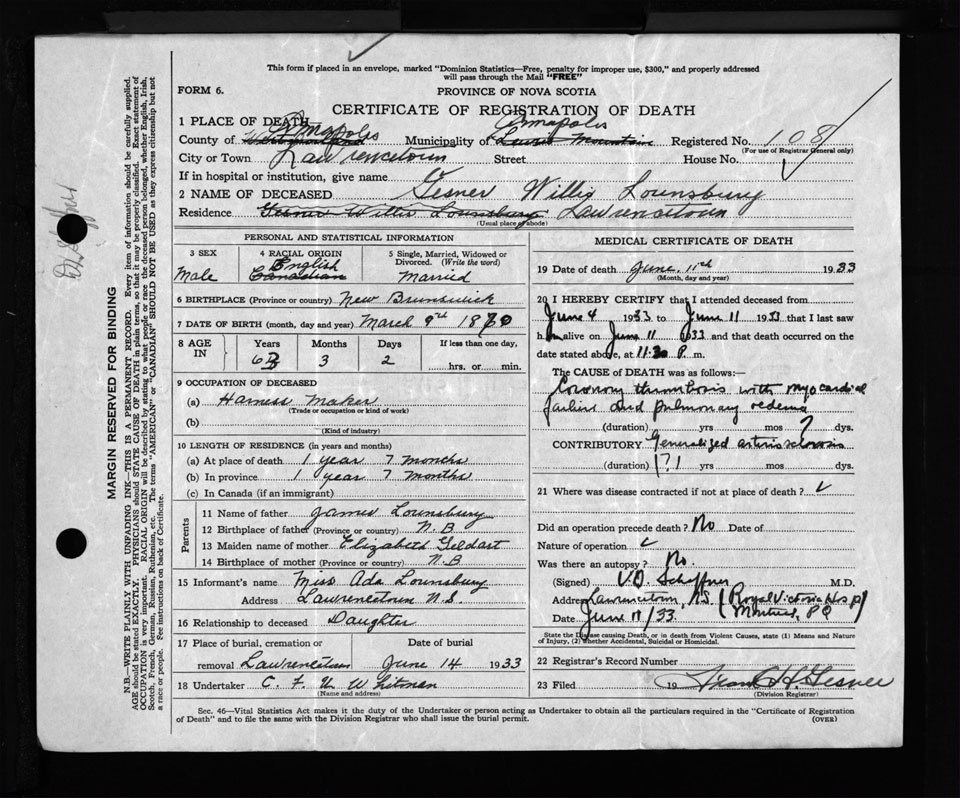 This form if placed in an envelope, marked "Dominion Statistics—Free, penalty for improper use, $300," and properly addressed
will pass through the Mail "FREE"
FORM 6. PROVINCE OF NOVA SCOTIA
CERTIFICATE OF REGISTRATION OF DEATH
1 PLACE OF DEATH Annapolis
County of Annapolis Municipality of Registered No. 108
(For use of Registrar General only)
City or Town Lawrencetown Street House No.
If in hospital or institution, give name
2 NAME OF DECEASED Gesner Willis Lounsbury
Residence Gesner Willis Lounsbury Lawrencetown
(Usual place of abode)
MARGIN RESERVED FOR BINDING
N.B.—WRITE PLAINLY WITH UNFADING INK—THIS IS A PERMANENT RECORD. Every item of information should be carefully supplied.
AGE should be stated EXACTLY. PHYSICIANS should STATE CAUSE OF DEATH in plain terms, so that it may be properly classified. Exact statement of
OCCUPATION is very important. RACIAL ORIGIN will be described by stating to what people or race the deceased person belonged, whether English, Irish,
Scotch, French, German, Russian, Ruthenian, etc. The terms "AMERICAN" or "CANADIAN" SHOULD NOT BE USED as they express citizenship but not
a race or people. See instructions on back of Certificate.
PERSONAL AND STATISTICAL INFORMATION
3 SEX 4 RACIAL ORIGIN 5 Single, Married, Widowed or
Divorced. (Write the word)
Male English Canadian Married
6 BIRTHPLACE (Province or country) New Brunswick
7 DATE OF BIRTH (month, day and year) March 9th 1870
8 AGE IN Years Months Days If less than one day,
63 3 2 hrs. or min.
9 OCCUPATION OF DECEASED
(a) Harness Maker
(Trade or occupation or kind of work)
(b)
(Kind of industry)
10 LENGTH OF RESIDENCE (in years and months)
(a) At place of death 1 year 7 months
(b) In province 1 year 7 months
(c) In Canada (if an immigrant)
Parents
11 Name of father James Lounsbury
12 Birthplace of father (Province or country) N.B
13 Maiden name of mother Elizabeth Geldart
14 Birthplace of mother (Province or country) N.B
15 Informant's name Miss Ada Lounsbury
Address Lawrencetown N.S.
16 Relationship to deceased Daughter
17 Place of burial, cremation or Date of burial
removal Lawrencetown June 14 1933
18 Undertaker C. F. Whitman
(Name and address)
MEDICAL CERTIFICATE OF DEATH
19 Date of death June 11th 1933
(Month, day and year)
20 I HEREBY CERTIFY that I attended deceased from
June 4 1933 to June 11 1933 that I last saw
him alive on June 11 1933 and that death occurred on the
date stated above, at 11:30 P. m.
The CAUSE of DEATH was as follows:—
Coronary thrombosis with myocardial
failure and pulmonary oedema
(duration) yrs mos ? dys.
CONTRIBUTORY Generalized arteriosclerosis
(duration) 1?1 yrs mos dys.
21 Where was disease contracted if not at place of death?
Did an operation precede death? No Date of
Nature of operation
Was there an autopsy? No.
(Signed) V.D. Schaffner M.D.
Address Lawrencetown, N.S. (Royal Victoria Hosp)
Date June 11/33. Montreal, PQ
State the Disease causing Death, or in death from Violent Causes, state (1) Means and Nature
of Injury, (2) whether Accidental, Suicidal or Homicidal.
22 Registrar's Record Number
23 Filed 19 Frank H. Gesner
(Division Registrar)
Sec. 46—Vital Statistics Act makes it the duty of the Undertaker or person acting as Undertaker to obtain all the particulars required in the "Certificate of Registration
of Death" and to file the same with the Division Registrar who shall issue the burial permit. (OVER)